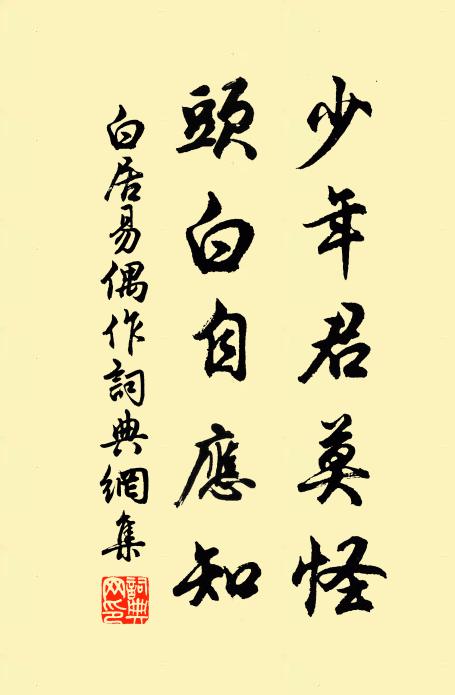 少年君莫怪
頭白自應知
白居易偶作詞典網集
詞典网印